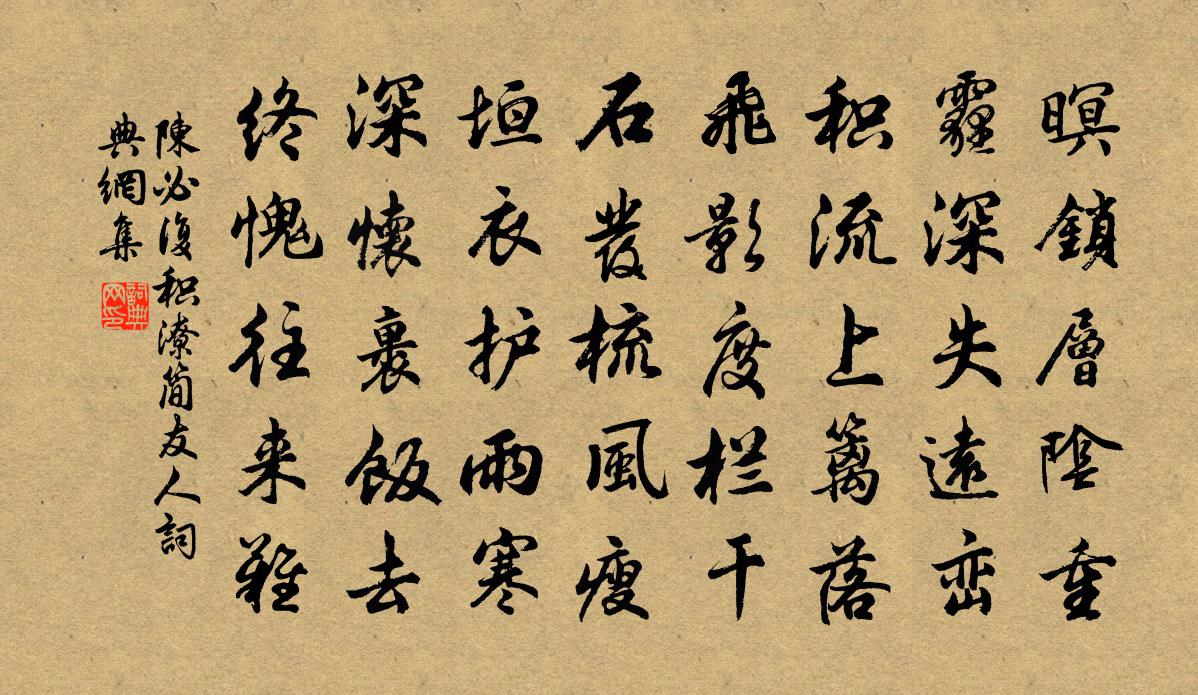 暝鎖層陰重
霾深失遠巒
积流上篱落
飛影度栏干
石發梳風瘦
垣衣护雨寒
深懷裹飯去
终愧往来難
陳必復积潦简友人詞
典網集
詞典网印